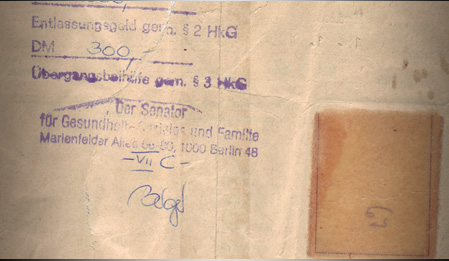 Entlassungsgeld gem. § 2 HkG
DM 300,-
Übergangsbeihilfe gem. § 3 HkG
Der Senator
für Gesundheit, Soziales und Familie
Marienfelder Allee 66-80, 1000 Berlin 48
-VII C-